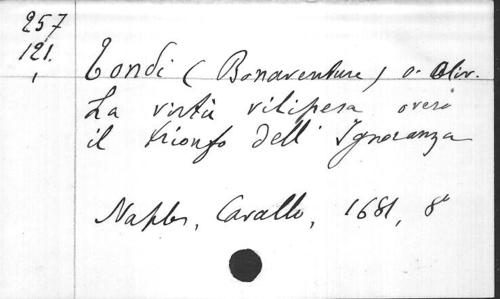 257
121.
1
Tondi (Bonaventure) o. Oliv.
La virtù vilipesa overo
il trionfo dell' Ignoranza
Naples, Cavallo, 1681, 8°